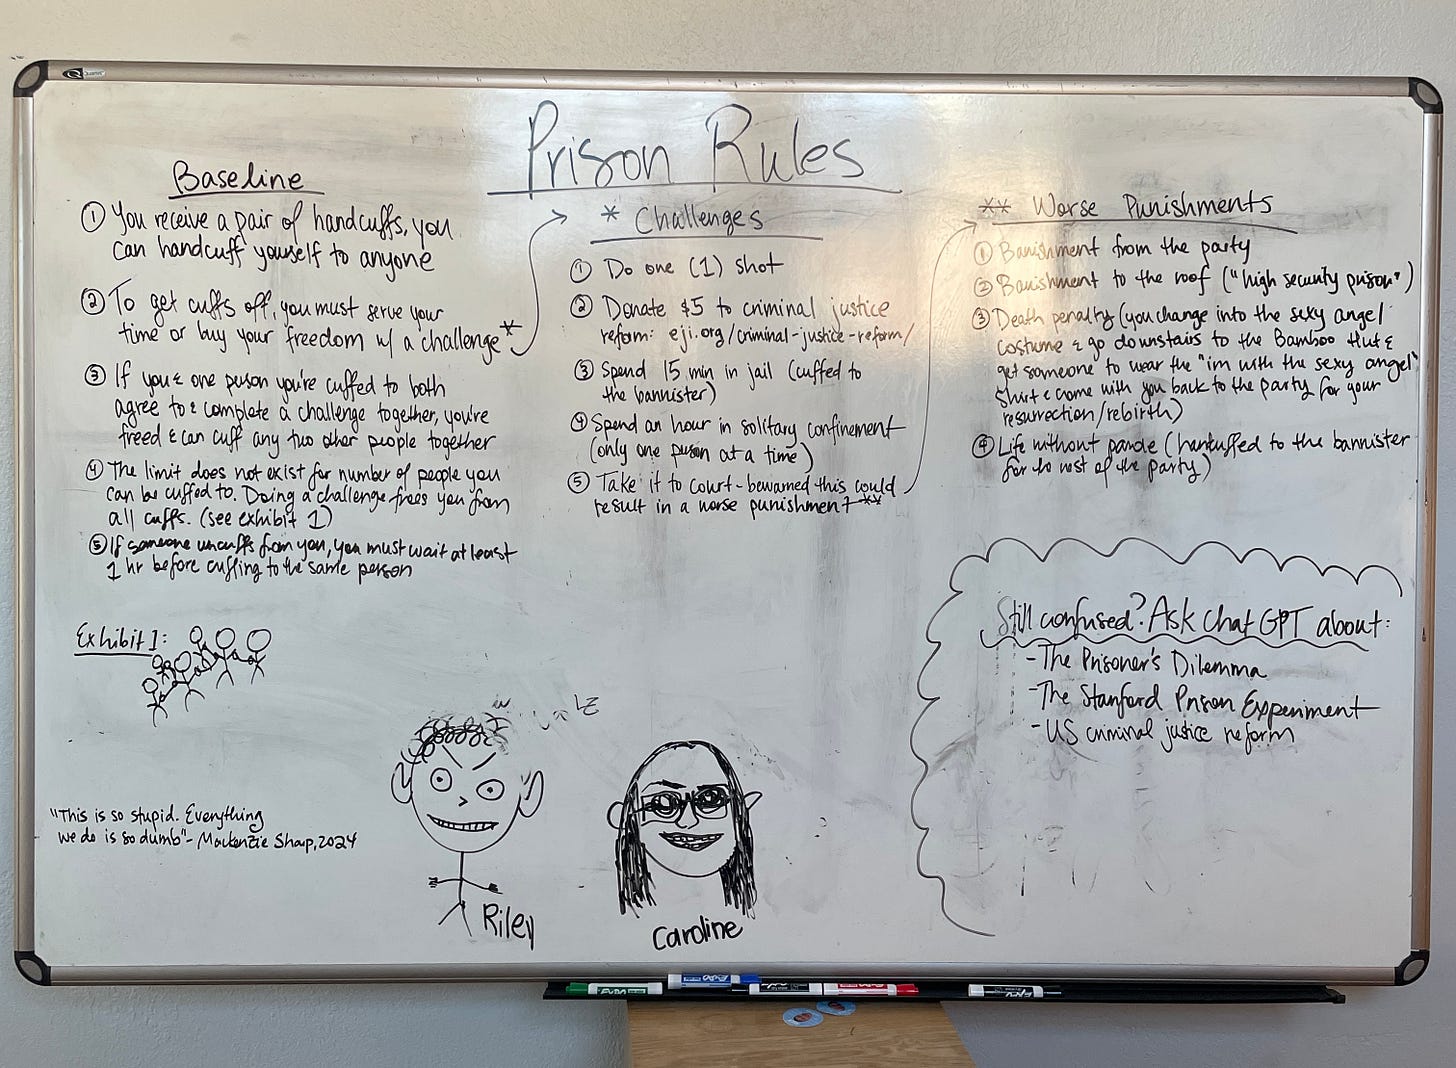 Prison Rules
Baseline
① You receive a pair of handcuffs, you
can handcuff yourself to anyone
② To get cuffs off, you must serve your
time or buy your freedom w/ a challenge*
③ If you & one person you're cuffed to both
agree to & complete a challenge together, you're
freed & can cuff any two other people together
④ The limit does not exist for number of people you
can be cuffed to. Doing a challenge frees you from
all cuffs. (see exhibit 1)
⑤ If someone uncuffs from you, you must wait at least
1 hr before cuffing to the same person
Exhibit 1:
"This is so stupid. Everything
we do is so dumb" - Mackenzie Sharp, 2024
* Challenges
① Do one (1) shot
② Donate $5 to criminal justice
reform: eji.org/criminal-justice-reform/
③ Spend 15 min in jail (cuffed to
the bannister)
④ Spend an hour in solitary confinement
(only one person at a time)
⑤ Take it to court - bewarned this could
result in a worse punishment **
Riley
Caroline
** Worse Punishments
① Banishment from the party
② Banishment to the roof ("high security prison")
③ Death penalty (you change into the sexy angel
costume & go downstairs to the Bamboo Hut &
get someone to wear the "im with the sexy angel"
shirt & come with you back to the party for your
resurrection/rebirth)
④ Life without parole (handcuffed to the bannister
for the rest of the party)
Still confused? Ask Chat GPT about:
- The Prisoner's Dilemma
- The Stanford Prison Experiment
- US criminal justice reform
Quartet
EXPO
EXPO
EXPO
EXPO